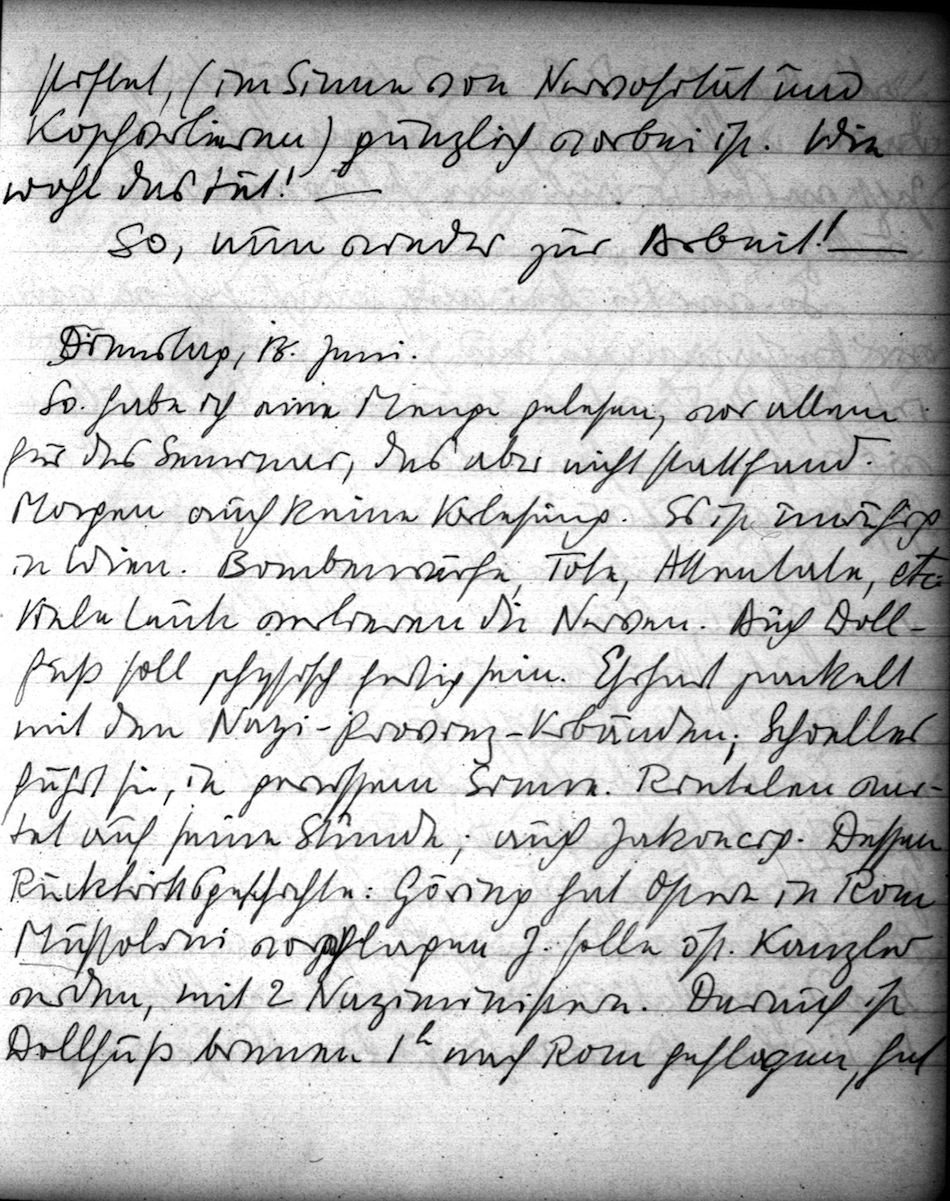 (im Sinne von Nervosität und
Kopfverlieren) gänzlich vorbei ist. Wie
wohl das tut! —
So, nun wieder zur Arbeit! —
Dienstag, 13. Juni.
So habe ich eine Menge gelesen, vor allem
für das Seminar, das aber nicht stattfand.
Morgen auch keine Vorlesung. Es ist unruhig
in Wien. Bombenwürfe, Tote, Attentate, etc.
Viele Leute verlieren die Nerven. Auch Doll-
fuß soll physisch fertig sein. Ehrhart packelt
mit den Nazi-Provinz-Verbänden; Schoeller
führt sie, in gewissem Sinne. Rintelen war-
tet auf seine Stunde; auch Jakoncig. Dessen
Rücktrittsgeschichte: Göring hat Ostern in Rom
Mussolini vorgeschlagen J. solle öst. Kanzler
werden, mit 2 Naziministern. Darauf ist
Dollfuß binnen 1h nach Rom geflogen, hat